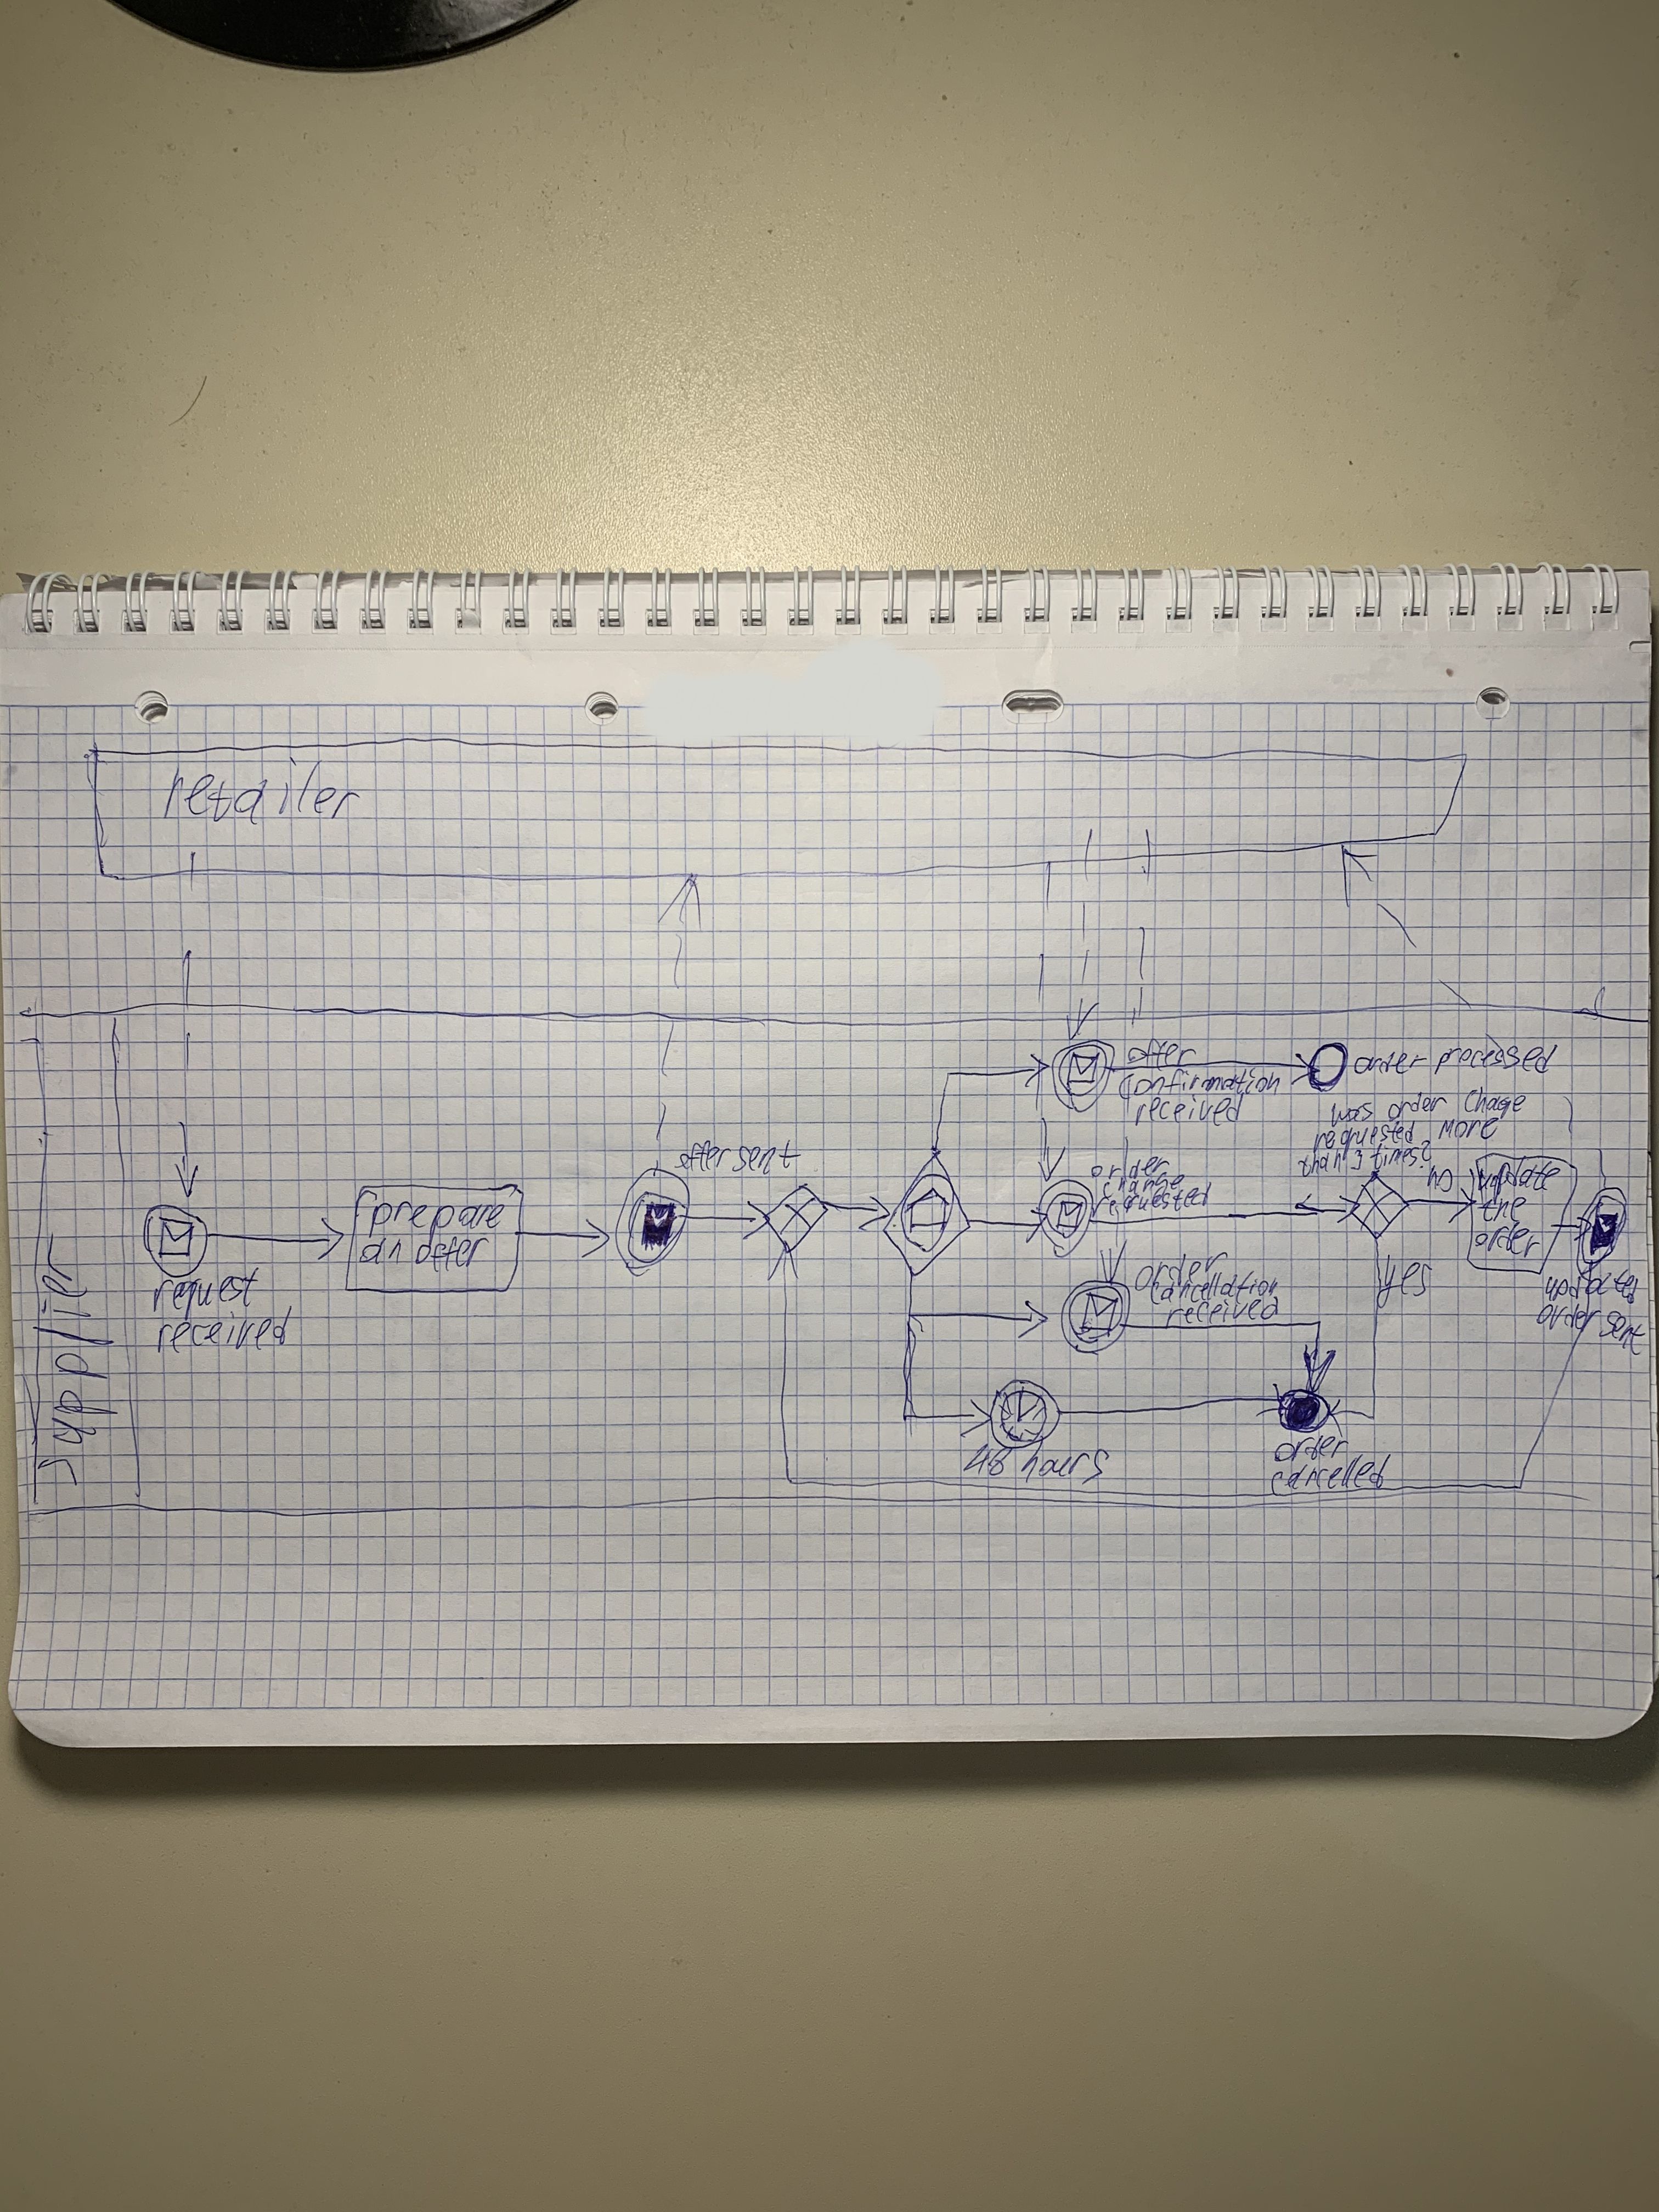 retailer
supplier
request
received
prepare
an offer
offer sent
offer
confirmation
received
order processed
order
change
requested
was order chage
requested more
than 3 times?
no
yes
update
the
order
updated
order sent
order
cancellation
received
48 hours
order
cancelled